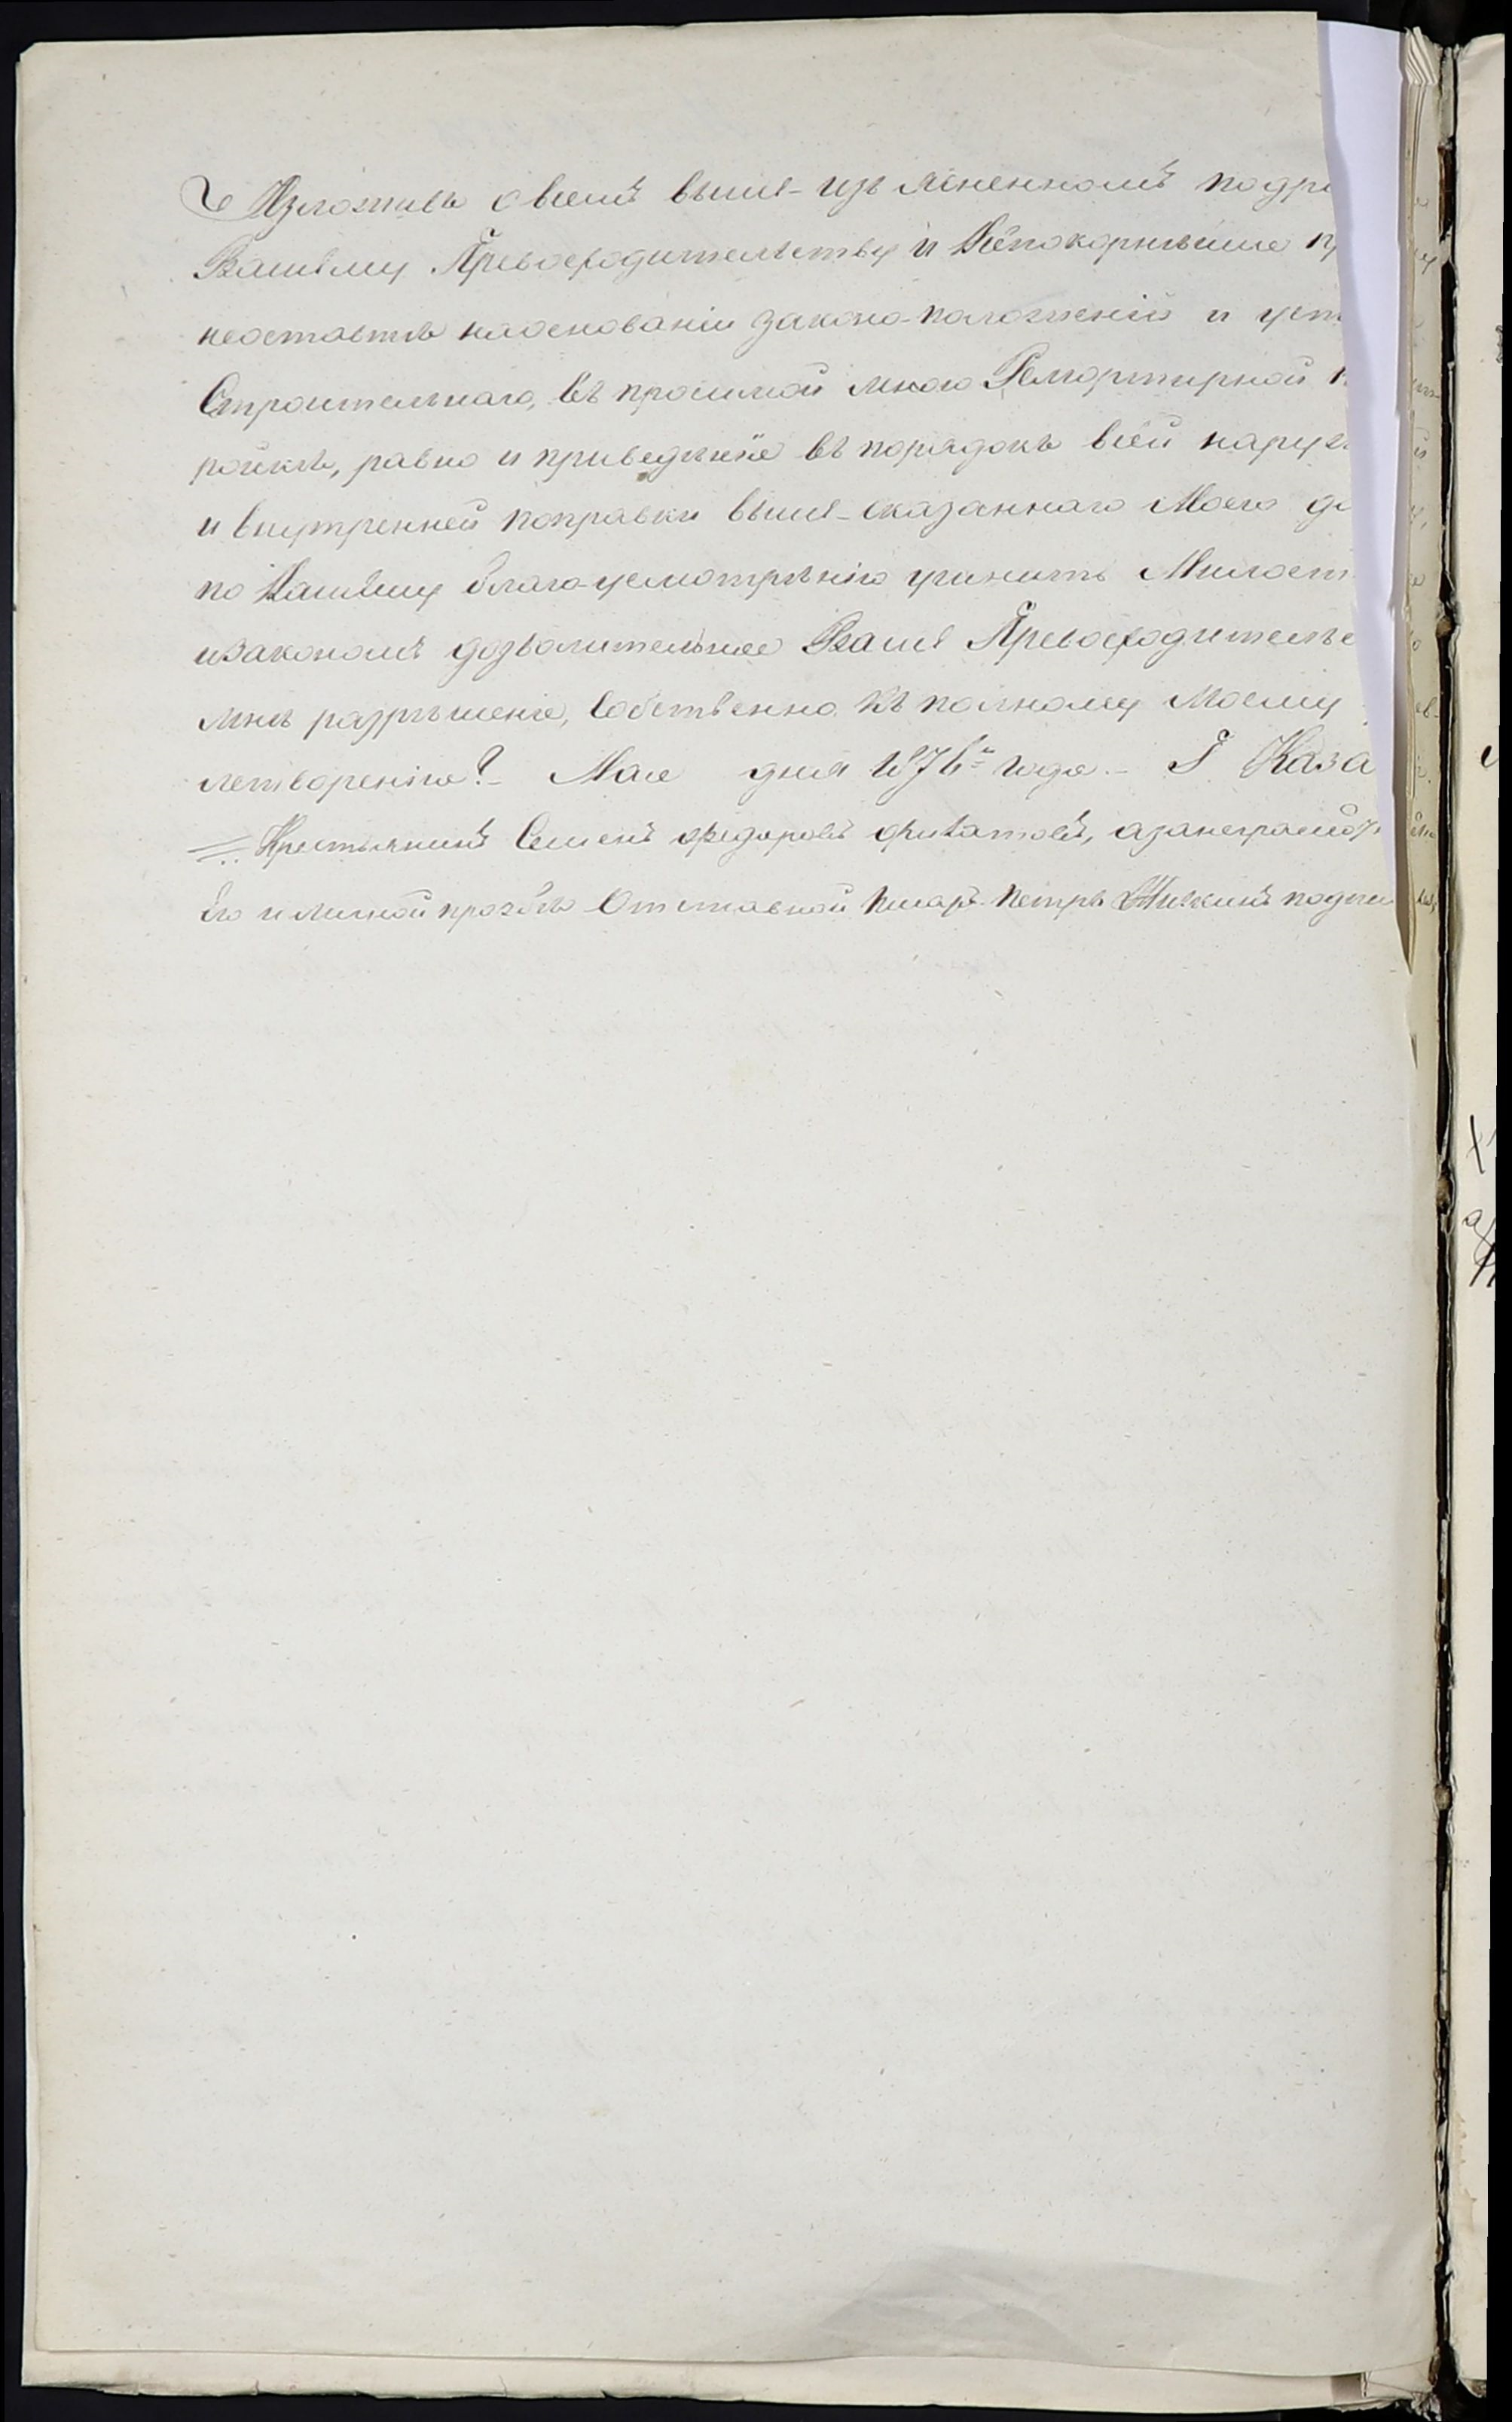 Изложивъ о всемъ выше-изъясненномъ подро
Вашему Превосходительству и Всепокорнѣйше пр
неоставить наоснованіи законо-положеній и уст
Строительнаго, въ просимой мною Ремортирной п
ройкѣ, равно и приведѣніе въ порядокъ всей наруж
и внутренней поправки выше-сказаннаго Моего до
по Вашему благо-усмотрѣнію учинить Милост
изакономъ дозволительное Ваше Превосходительс
мнѣ разрѣшеніе, Собственно къ полному Моему
летворенію? Мая дня 1876го года. Г. Каза
Крестьянинъ Семенъ Федоровъ, азанеграмот
Его иличной прозьбѣ Отставной Писарь Петръ подпи